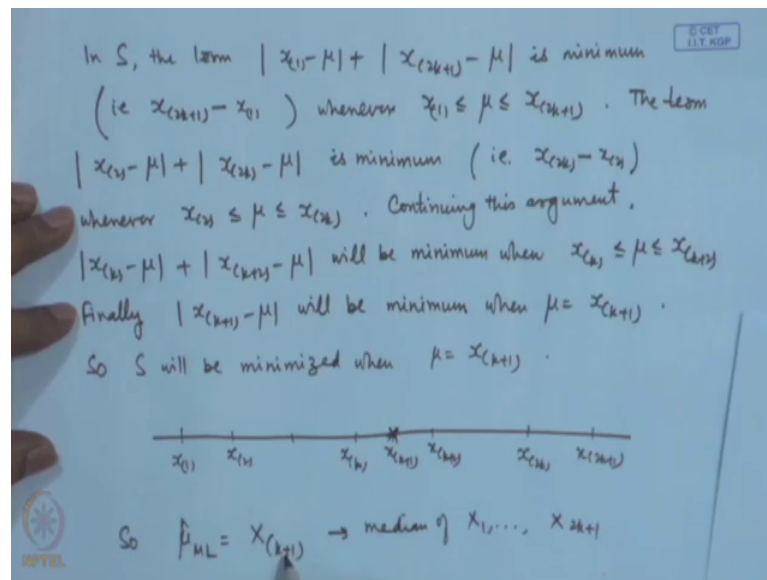 © CET
I.I.T. KGP
In S, the term | x₍₁₎-μ| + | x₍₂ₖ₊₁₎ - μ| is minimum
(ie x₍₂ₖ₊₁₎ - x₍₁₎ ) whenever x₍₁₎ ≤ μ ≤ x₍₂ₖ₊₁₎ . The term
| x₍₂₎ - μ| + | x₍₂ₖ₎ - μ| is minimum ( ie. x₍₂ₖ₎ - x₍₂₎ )
whenever x₍₂₎ ≤ μ ≤ x₍₂ₖ₎ . Continuing this argument,
|x₍ₖ₎ - μ| + | x₍ₖ₊₂₎ - μ| will be minimum when x₍ₖ₎ ≤ μ ≤ x₍ₖ₊₂₎
Finally | x₍ₖ₊₁₎ - μ| will be minimum when μ = x₍ₖ₊₁₎ .
So S will be minimized when μ = x₍ₖ₊₁₎ .
x₍₁₎ x₍₂₎ x₍ₖ₎ x₍ₖ₊₁₎ x₍ₖ₊₂₎ x₍₂ₖ₎ x₍₂ₖ₊₁₎
So μ̂ML = X₍ₖ₊₁₎ → median of X₁, ..., X₂ₖ₊₁
NPTEL